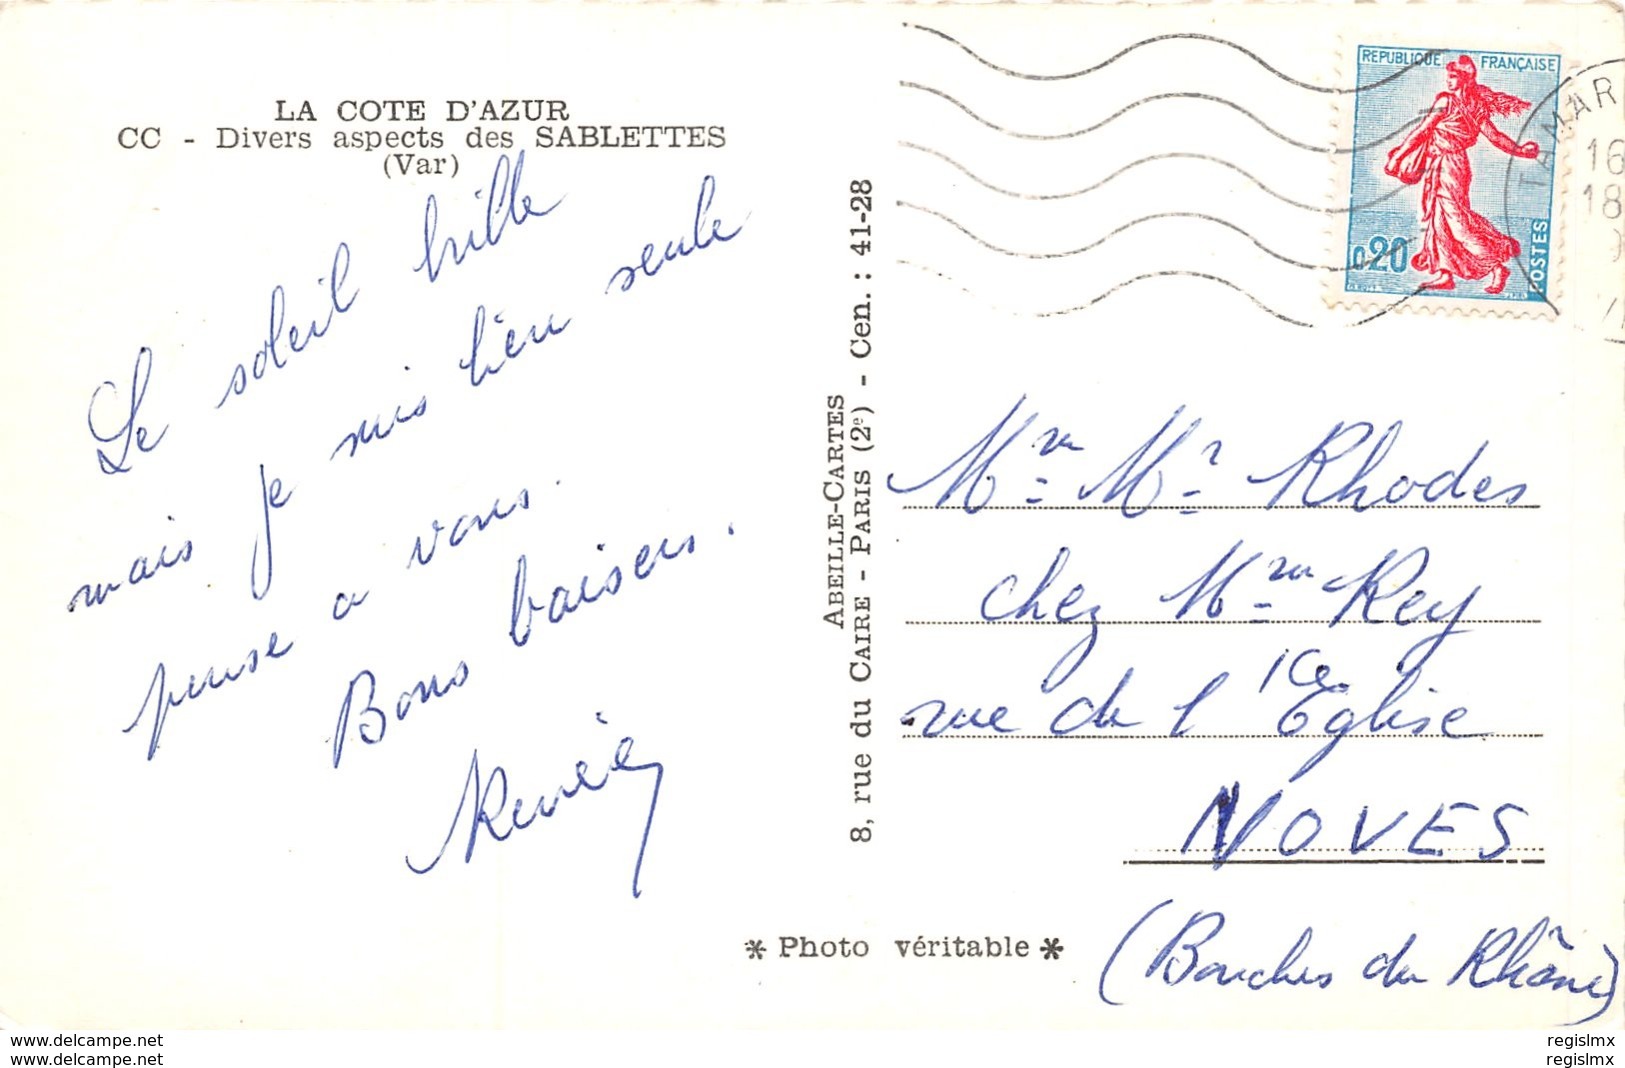 LA COTE D'AZUR
CC - Divers aspects des SABLETTES
(Var)
Le soleil brille
mais je suis bien seule
pense a vous.
Bons baisers.
Renée
ABEILLE-CARTES
8, rue du CAIRE - PARIS (2e) - Cen. : 41-28
* Photo véritable *
REPUBLIQUE FRANÇAISE
0,20
POSTES
TAMAR
16
18
Mr Rhodes
chez Mme Rey
rue de l'Eglise
NOVES
(Bouches du Rhône)
regislmx
regislmx
www.delcampe.net
www.delcampe.net